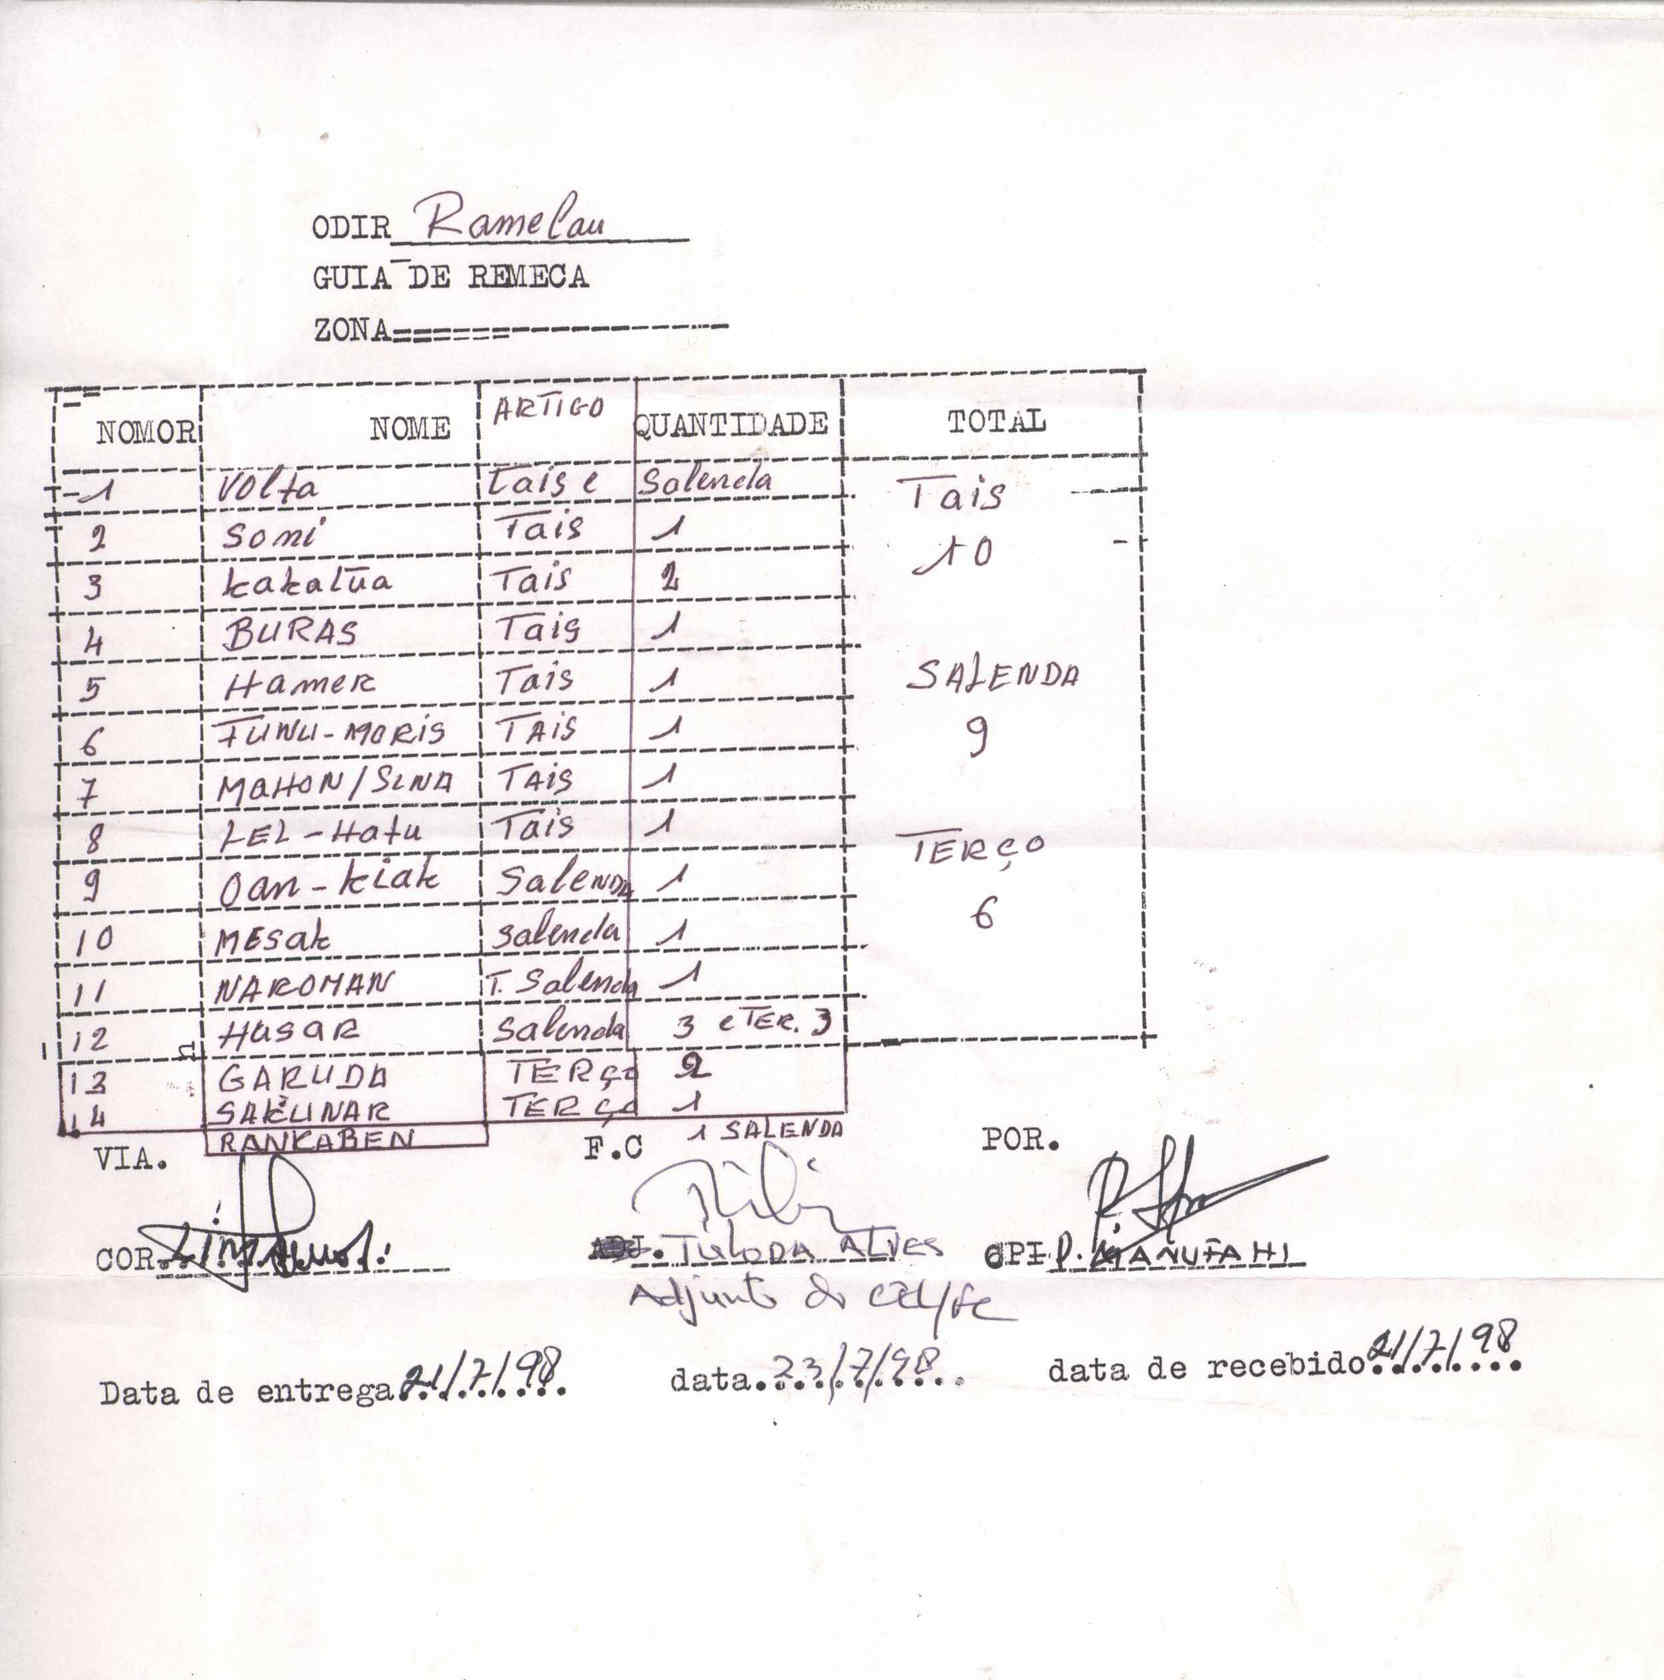 ODIR Ramelau
GUIA DE REMECA
ZONA
NOMOR NOME ARTIGO QUANTIDADE TOTAL
1 Volta Tais e Salenda Tais
2 Somi Tais 1 10
3 kakatua Tais 2
4 BURAS Tais 1
5 Hamer Tais 1 SALENDA
6 FUNU-MORIS TAIS 1 9
7 MAHON/SLNA TAIS 1
8 LEL-Hatu Tais 1 TERÇO
9 Oan-kiak Salenda 1 6
10 MEsak Salenda 1
11 NAROMAN T. Salenda 1
12 HASAR Salenda 3 e TER. 3
13 GARUDA TERÇO 2
14 SAKUNAR TERÇO 1
RANKABEN 1 SALENDA
VIA. F.C POR.
COR. ALVES CPI P. MANUFAHI
Adjunto do
Data de entrega 21/7/98 data 23/7/98 data de recebido 21/7/98